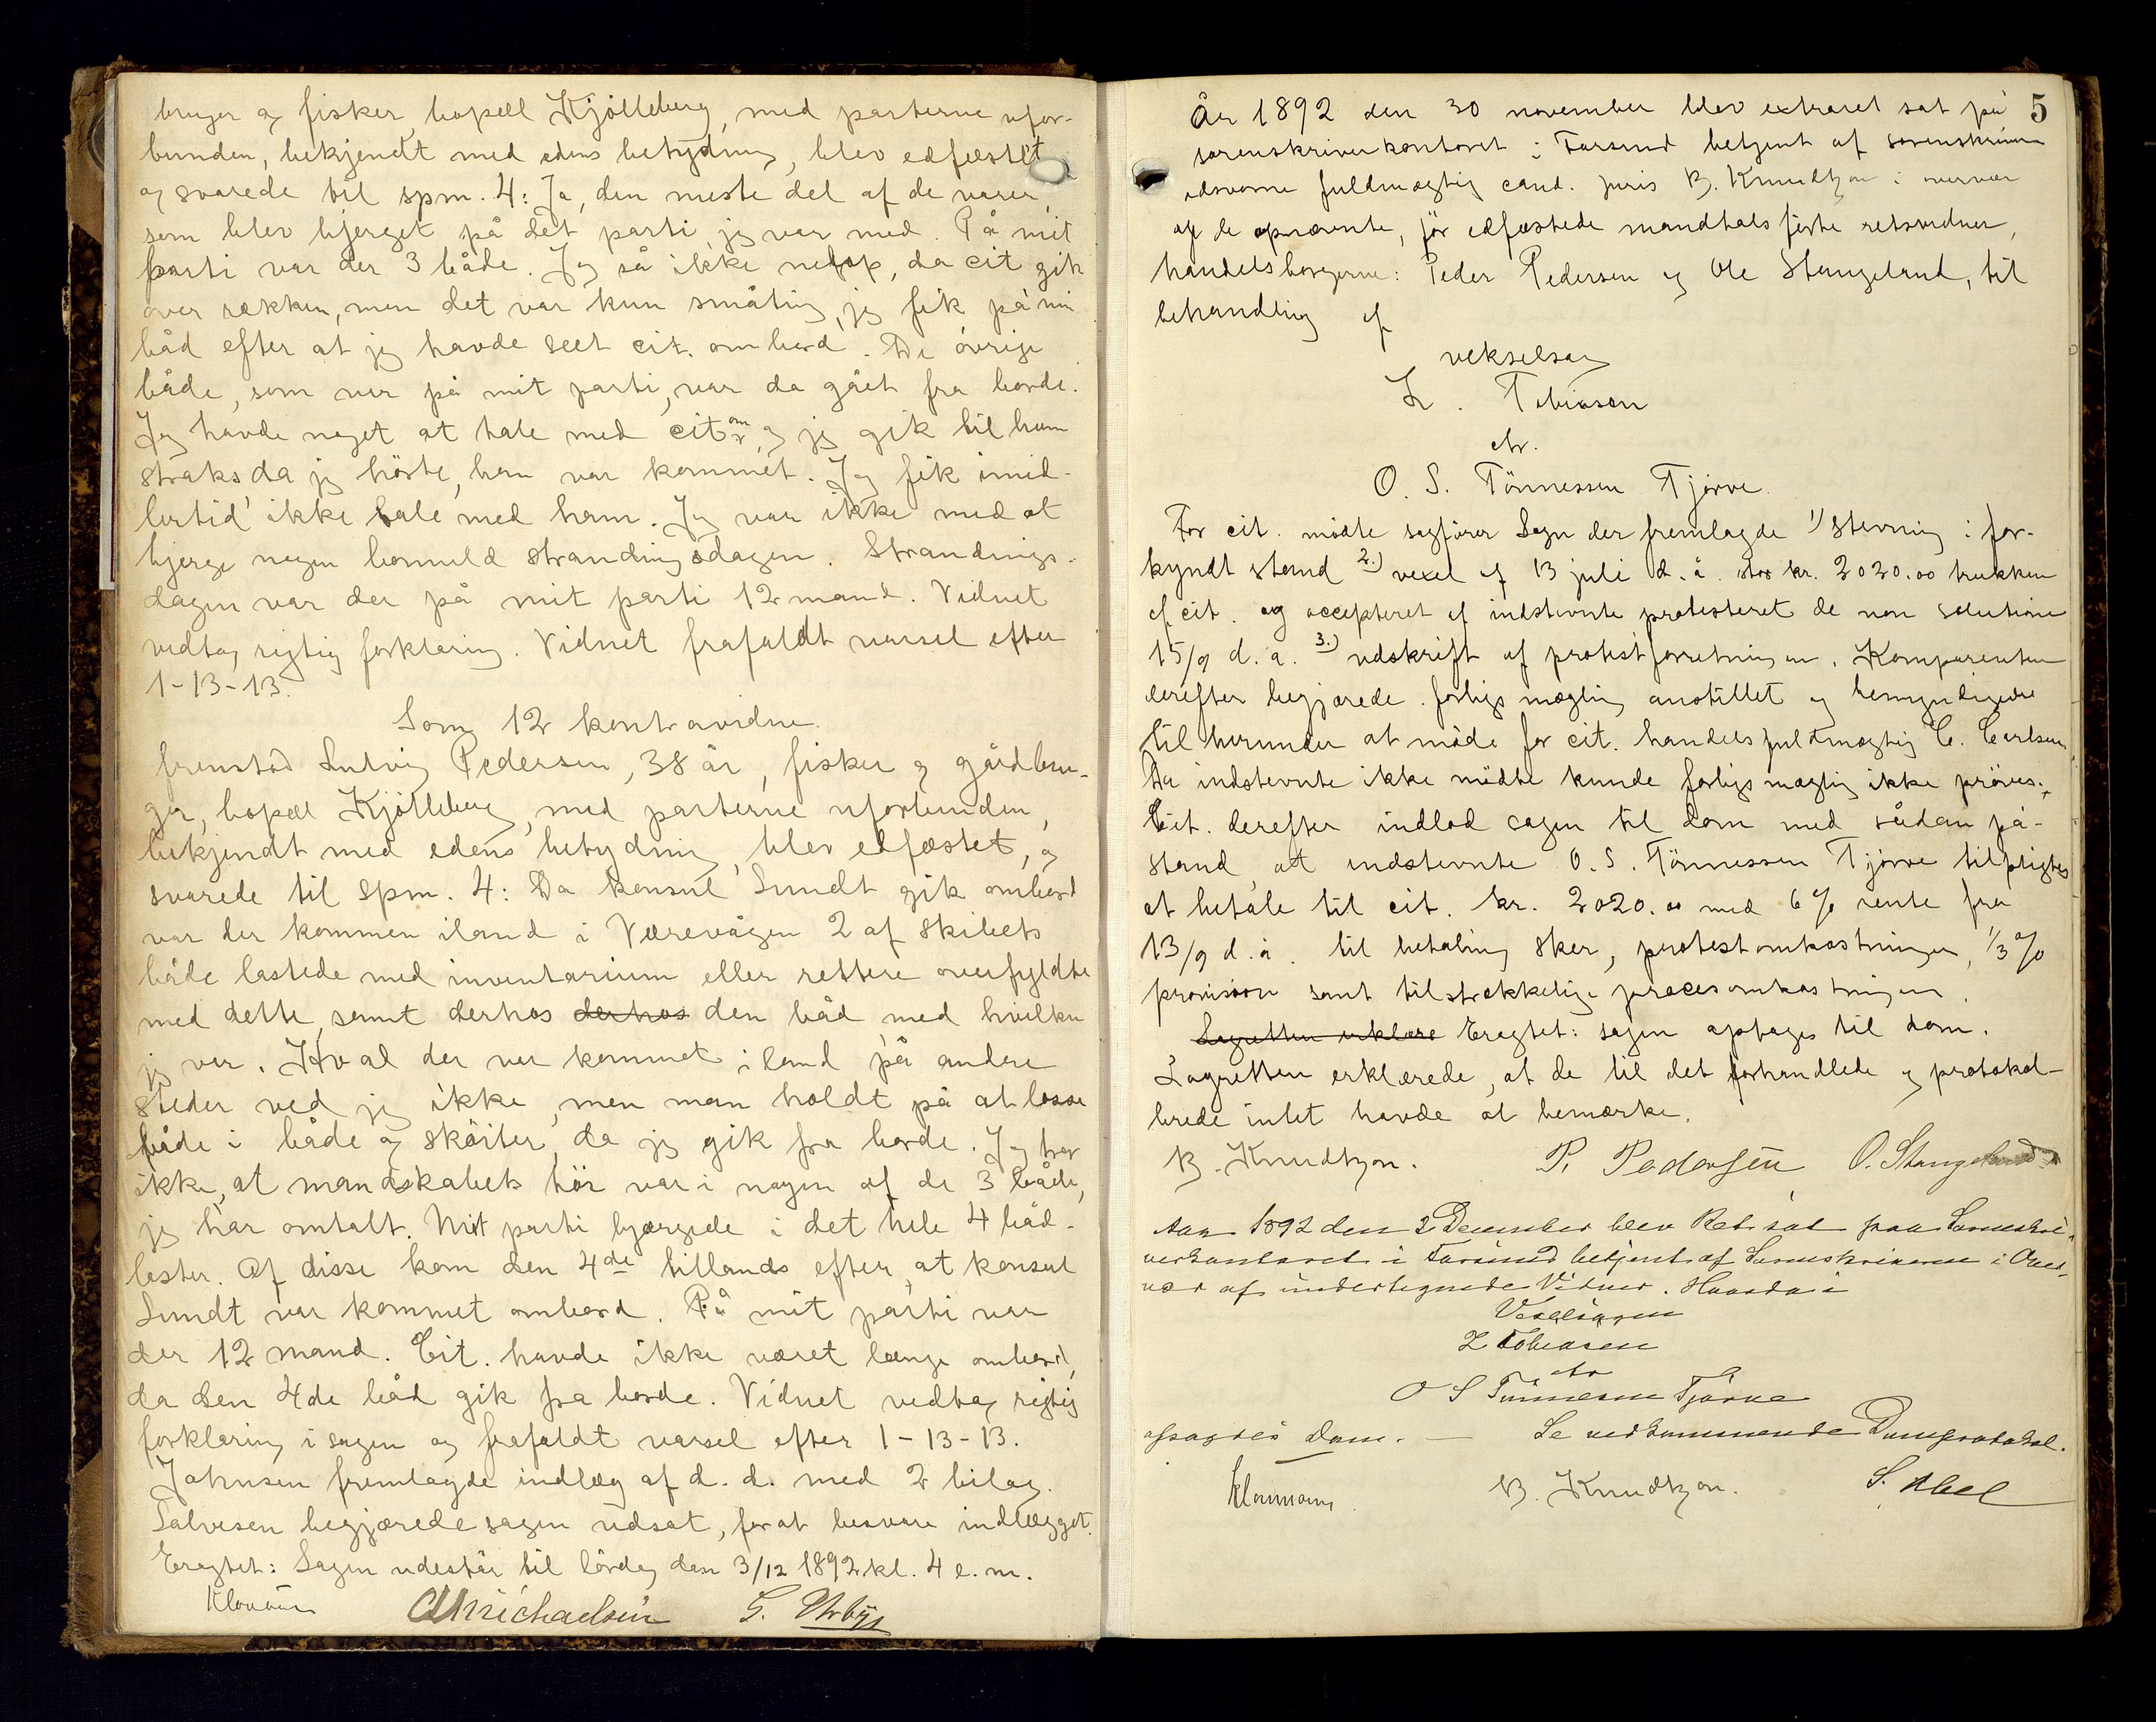 bruger og fisker, bopæl Kjölleberg, med parterne ufor-
bunden, bekjendt med edens betydning, blev edfæstet
og svarede til spm. 4: Ja, den meste del af de varer,
som blev bjerget på det parti jeg var med. På mit
parti var der 3 både. Jeg så ikke netop, da cit gik
over rækken, men det var kun småting, jeg fik på min
båd efter at jeg havde seet cit. ombord. De övrige
både, som var på mit parti, var da gået fra borde.
Jeg havde noget at tale med cit om, og jeg gik til ham
straks da jeg hörte, han var kommet. Jeg fik imid-
lertid ikke tale med ham. Jeg var ikke med at
bjerge nogen bomuld strandingsdagen. Strandings-
dagen var der på mit parti 12 mand. Vidnet
vedtog rigtig forklaring. Vidnet frafaldt varsel efter
1-13-13.
Som 12 kontravidne
fremstod Ludvig Pedersen, 38 år, fisker og gårdbru-
ger, bopæl Kjölleberg, med parterne uforbunden,
bekjendt med edens betydning, blev edfæstet, og
svarede til spm. 4: Da konsul Lundt gik ombord
var der kommen iland i Værevågen 2 af skibets
både lastede med inventarium eller rettere overfyldte
med dette, samt derhos derhos den båd med hvilken
jeg var. Hval der var kommet i land på andre
steder ved jeg ikke, men man holdt på at losse
både i både og sköiter, da jeg gik fra borde. Jeg tror
ikke, at mandskabets töi var i nogen af de 3 både,
jeg har omtalt. Mit parti bjærgede i det hele 4 båd-
laster. Af disse kom den 4de tillands efter, at konsul
Lundt var kommet ombord. På mit parti var
der 12 mand. Cit. havde ikke været længe ombord,
da den 4de båd gik fra borde. Vidnet vedtog rigtig
forklaring i sagen og frafaldt varsel efter 1-13-13.
Johnsen fremlagde indlæg af d. d. med 2 bilag.
Salvesen begjærede sagen udsat, for at besvare indlægget.
Eragtet: Sagen udestår til lördag den 3/12 1892 kl. 4 e. m.
Michaelsen
År 1892 den 30 november blev extraret sat på 5
sorenskriverkontoret i Farsund betjent af sorenskriverens
edsvorne fuldmægtig cand. juris B. Knudtzon i overvær
af de opnævnte, för edfæstede mandtalsförte retsvidner,
handelsborgerne: Peder Pedersen og Ole Stangeland, til
behandling af
vekselsag
Z. Tobiasen
ctr.
O. S. Tönnessen Tjörve.
For cit. mödte sagförer Sagn der fremlagde 1) stevning i for-
kyndt stand 2.) vexel af 13 juli d. å. stor kr. 2020.00 trukken
af cit. og accepteret af indstevnte protesteret de non solutione
15/9 d. a. 3.) udskrift af protestforretningen. Komparenten
derefter begjærede forligsmægling anstillet og bemyndigede
til herunder at möde for cit. handelsfuldmægtig C. Carlsen
Da indstevnte ikke mödte kunde forligsmægling ikke pröves.
Cit. derefter indlod sagen til dom med sådan på-
stand, at indstevnte O. S. Tönnessen Tjörve tilpligtes
at betale til cit. kr. 2020.00 med 6% rente fra
13/9 d. å. til betaling sker, protestomkostninger, 1/3 %
provision samt tilstrækkelige procesomkostninger.
Lagretten erklære Eragtet: sagen optages til dom.
Lagretten erklærede, at de til det forhandlede og protokol-
lerede intet havde at bemærke.
B. Knudtzon. P. Pedersen O. Stangeland
Aar 1892 den 2 December blev Ret sat paa Sorenskri-
verkontoret i Farsund betjent af Sorenskriveren i Over-
vær af undertegnede Vidner. Hvorda i
Vexelsagen
Z Tobiasen
ctr
O S Tönnesen Tjörve
afsagdes Dom. — Se vedkommende Domsprotokol.
B. Knudtzon. S. Abel